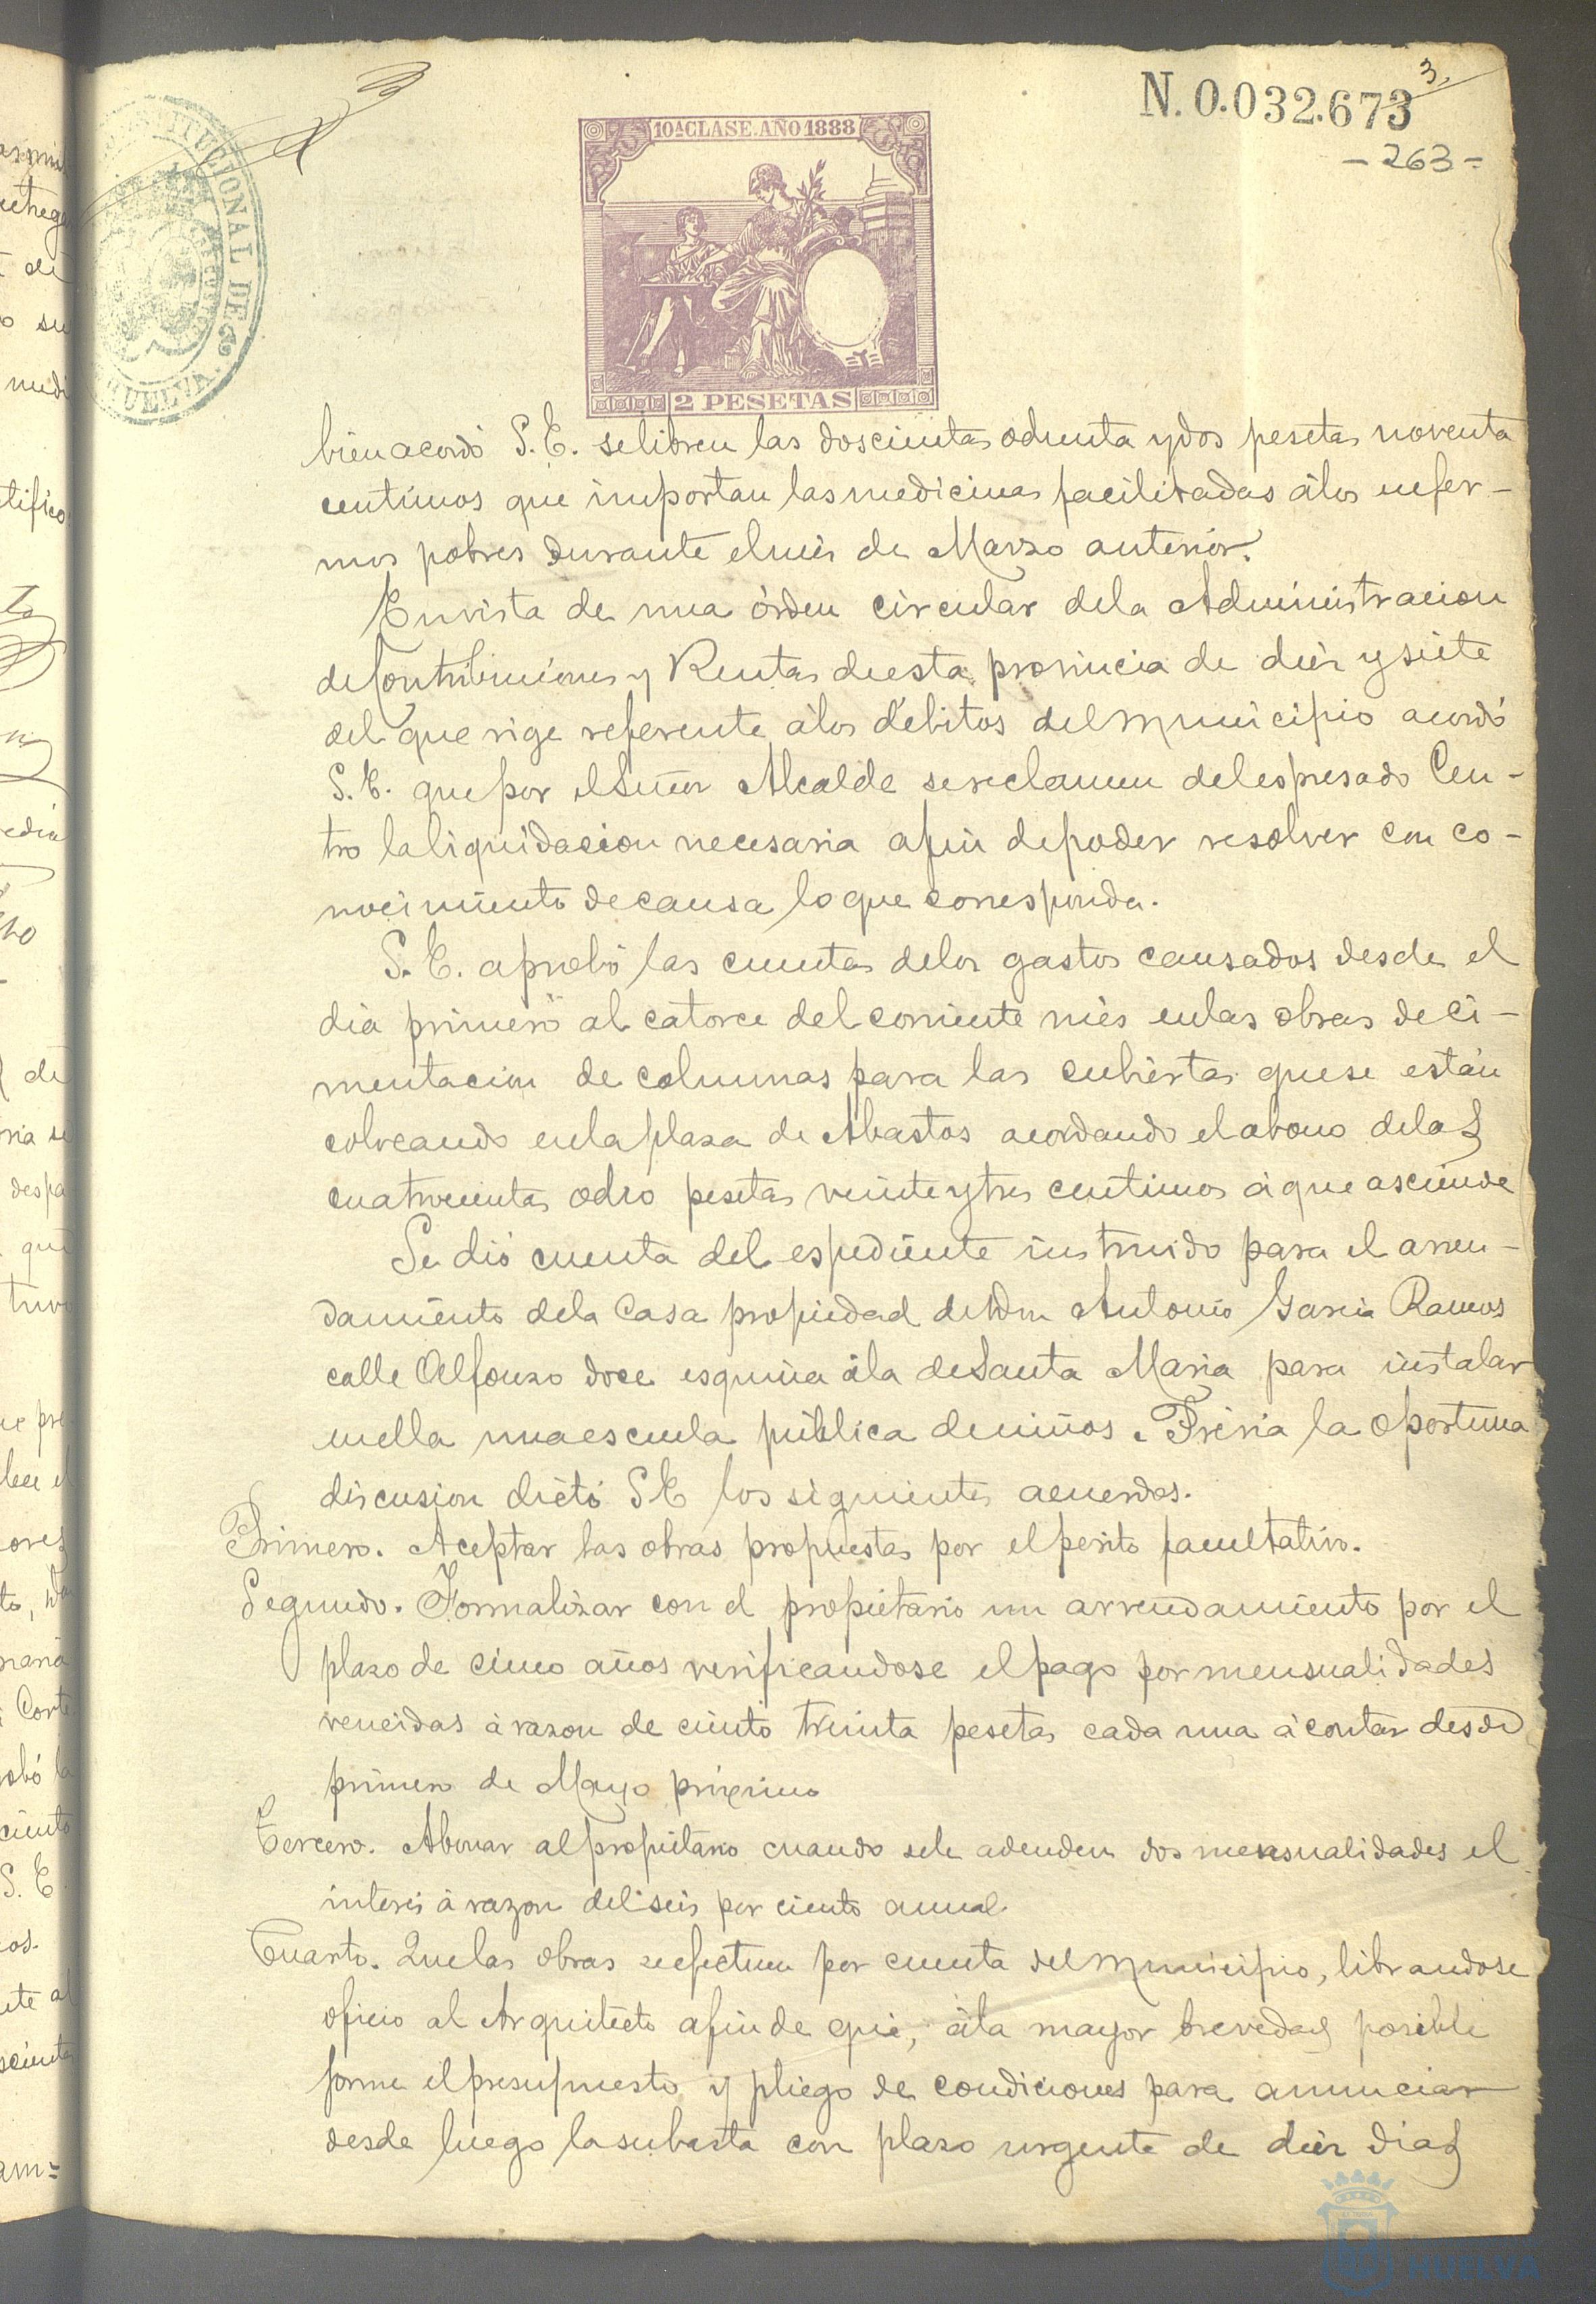 N. 0.032.673
3
- 263 -
10ª CLASE. AÑO 1888
2 PESETAS
HUELVA
bien acordó S.E. se libren las doscientas ochenta y dos pesetas noventa
centimos que importan las medicinas facilitadas á los enfer-
mos pobres durante el mes de Marzo anterior.
En vista de una órden circular de la Administracion
de Contribuciones y Rentas de esta provincia de diez y siete
del que rige referente á los débitos del Municipio acordó
S.E. que por el Señor Alcalde se reclamen del espresado Cen-
tro la liquidacion necesaria a fin de poder resolver con co-
nocimiento de causa lo que corresponda.
S.E. aprobó las cuentas de los gastos causados desde el
dia primero al catorce del corriente mes en las obras de ci-
mentacion de columnas para las cubiertas que se están
colocando en la plaza de Abastos acordando el abono de las
cuatrocientas ocho pesetas veinte y tres centimos á que asciende
Se dió cuenta del espediente instruido para el arren-
damiento de la Casa propiedad de Don Antonio Garcia Ramos
calle Alfonso doce esquina á la de Santa Maria para instalar
en ella una escuela pública de niños. Prévia la oportuna
discusion dictó S E los siguientes acuerdos.
Primero. Aceptar las obras propuestas por el perito facultativo.
Segundo. Formalizar con el propietario un arrendamiento por el
plazo de cinco años verificandose el pago por mensualidades
vencidas á razon de ciento treinta pesetas cada una á contar desde
primero de Mayo próximo
Tercero. Abonar al propietario cuando se le adeuden dos mensualidades el
interés á razon del seis por ciento anual.
Cuarto. Que las obras se efectuen por cuenta del Municipio, librandose
oficio al Arquitecto a fin de que, á la mayor brevedad posible
forme el presupuesto y pliego de condiciones para anunciar
desde luego la subasta con plazo urgente de diez dias
HUELVA